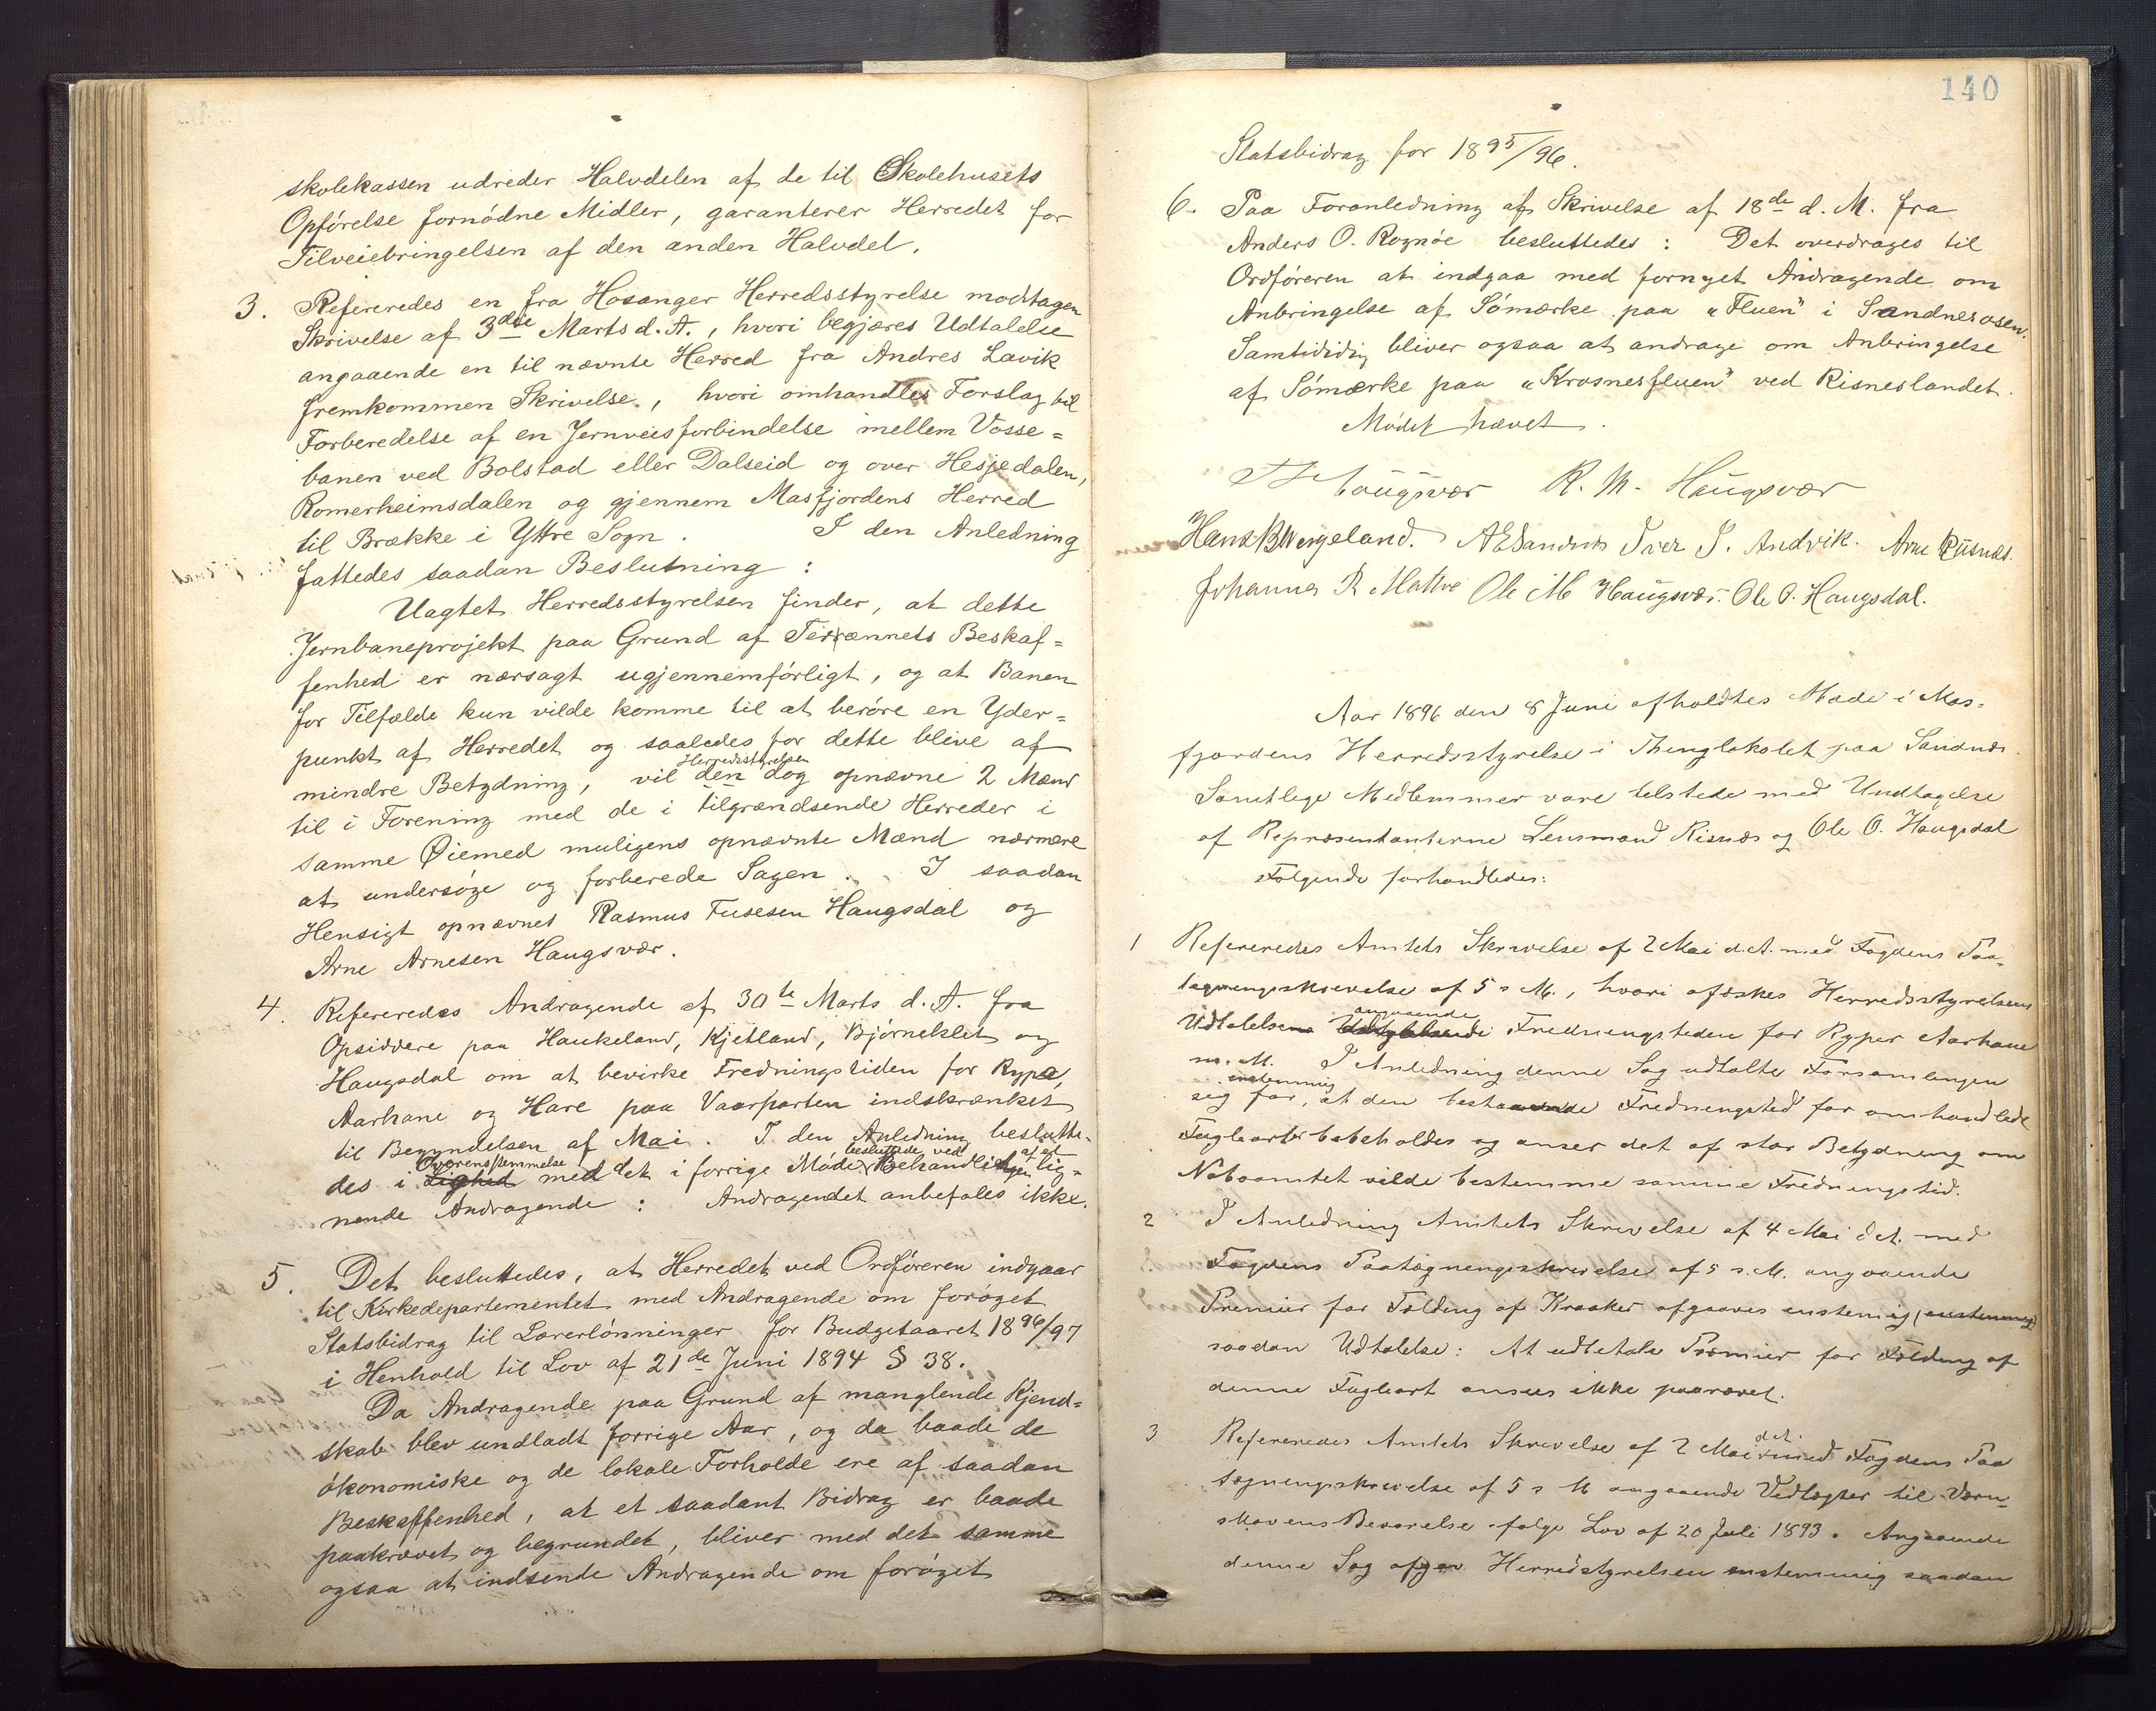 skolekassen udreder Halvdelen af de til Skolehusets
Opførelse fornødne Midler, garanterer Herredet for
Tilveiebringelsen af den anden Halvdel.
3. Refereredes en fra Hosanger Herredsstyrelse modtagen
Skrivelse af 3die Marts d. A., hvori begjæres Udtalelse
angaaende en til nævnte Herred fra Andres Lavik
fremkommen Skrivelse, hvori omhandles Forslag til
Forberedelse af en Jernveisforbindelse mellem Vosse=
banen ved Bolstad eller Dalseid og over Hesjedalen,
Romerheimsdalen og gjennem Masfjordens Herred
til Brække i Yttre Sogn. I den Anledning
fattedes saadan Beslutning:
Uagtet Herredsstyrelsen finder, at dette
Jernbaneprojekt paa Grund af Terrænnets Beskaf=
fenhed er nærsagt ugjennemførligt, og at Banen
for Tilfælde kun vilde komme til at berøre en Yder=
punkt af Herredet og saaledes for dette blive af
Herredsstyrelsen
mindre Betydning, vil den dog opnævne 2 Mænd
til i Forening med de i tilgrændsende Herreder i
samme Øiemed muligens opnævnte Mænd nærmere
at undersøge og forberede Sagen. I saadan
Hensigt opnævnes Rasmus Fusesen Haugsdal og
Arne Arnesen Haugsvær.
4. Refereredes Andragende af 30te Marts d. A. fra
Opsiddere paa Haukeland, Kjetland, Bjørneklet og
Haugsdal om at bevirke Fredningstiden for Rype,
Aarhane og Hare paa Vaarparten indskrænket
til Begyndelsen af Mai. I den Anledning beslutte-
Overensstemmelse besluttede ved af et
des i Lighed med det i forrige Møde Behandlingen lig=
nende Andragende: Andragendet anbefales ikke.
5. Det besluttedes, at Herredet ved Ordføreren indgaar
til Kirkedepartementet med Andragende om forøget
Statsbidrag til Lærerlønninger for Budgetaaret 1896/97
i Henhold til Lov af 21de Juni 1894 § 38.
Da Andragende paa Grund af manglende Kjend=
skab blev undladt forrige Aar, og da baade de
økonomiske og de lokale Forholde ere af saadan
Beskaffenhed, at et saadant Bidrag er baade
paakrævet og begrundet, bliver med det samme
ogsaa at indsende Andragende om forøget
140
Statsbidrag for 1895/96.
6. Paa Foranledning af Skrivelse af 18de d. M. fra
Anders O. Rognøe besluttedes: Det overdrages til
Ordføreren at indgaa med fornyet Andragende om
Anbringelse af Sømærke paa "Fluen" i Sandnesosen.
Samtididig bliver ogsaa at andrage om Anbringelse
af Sømærke paa "Krosnesfluen" ved Risneslandet.
Mødet hævet.
Haugsvær R. M. Haugsvær
Hans B Wergeland. A E Sandnes Iver I. Andvik. Arne Riisnes.
Johannes R Mattre Ole M Haugsvær. Ole O. Haugsdal.
Aar 1896 den 8 Juni afholdtes Møde i Mas-
fjordens Herredsstyrelse i Thinglokalet paa Sandnes.
Samtlige Medlemmer vare tilstede med Undtagelse
af Repræsentanterne Lensmand Risnæs og Ole O. Haugsdal
Følgende forhandledes:
1 Refereredes Amtets Skrivelse af 2 Mai d. A. med Fogdens Paa-
tegningsskrivelse af 5 s. M., hvori afæskes Herredsstyrelsens
angaaende
Udtalelse Fredningstiden for Ryper Aarhane
m. M. I Anledning denne Sag udtalte Forsamlingen
enstemmig
sig for, at den bestaaende Fredningstid for omhandlede
Fuglearter bibeholdes og anser det af stor Betydning om
Naboamtet vilde bestemme samme Fredningstid.
2 I Anledning Amtets Skrivelse af 4 Mai d. A. med
Fogdens Paategningsskrivelse af 5 s. M. angaaende
Premier for Fælding af Kraaker afgaves enstemig (enstemmig)
saadan Udtalelse: At udbetale Præmier for Fælding af
denne Fugleart ansees ikke paakrævet.
3 Refereredes Amtets Skrivelse af 2 Mai d. A. med Fogdens Paa
tegningsskrivelse af 5 s M angaaende Vedtægter til Værn-
skovens Bevarelse ifølge Lov af 20 Juli 1893. Angaaende
denne Sag afgav Herredstyrelsen enstemmig saadan